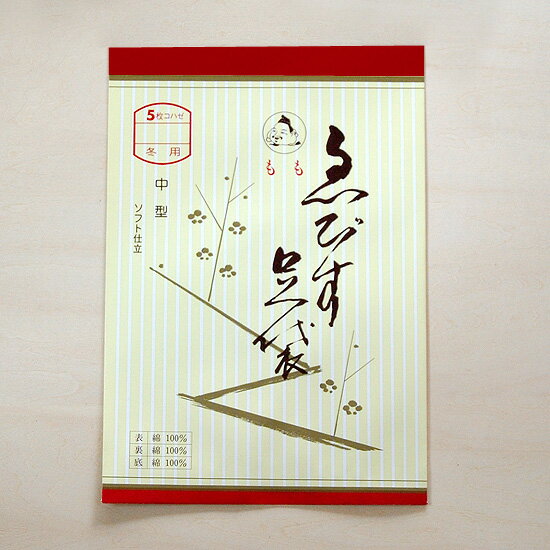 5枚コハゼ
冬用
もも
ゑびす
足袋
中型
ソフト仕立
表 綿 100%
裏 綿 100%
底 綿 100%